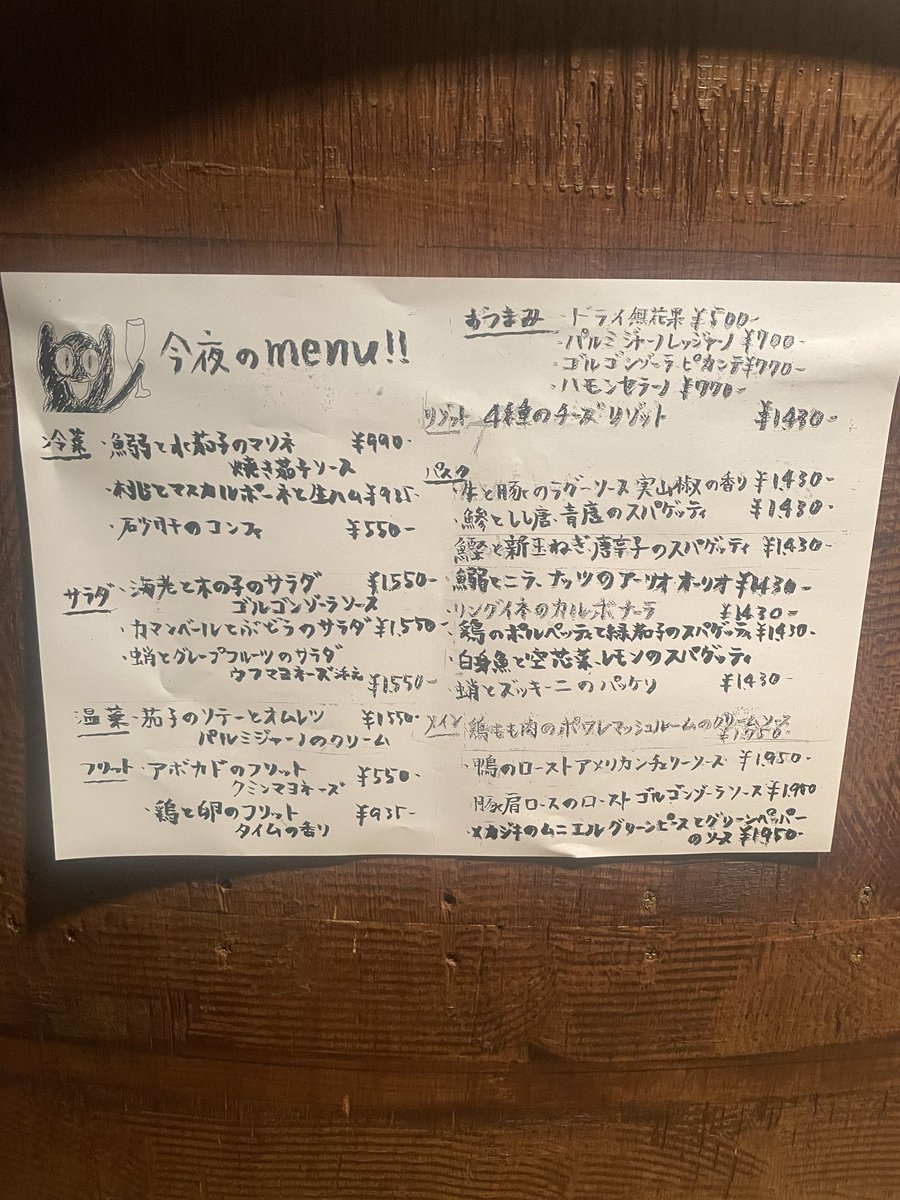 今夜のmenu!!
冷菜 ・鰯と水茄子のマリネ ¥990-
焼き茄子ソース
・桃とマスカルポーネと生ハム ¥935-
・砂肝のコンフィ ¥550-
サラダ ・海老と木の子のサラダ ¥1550-
ゴルゴンゾーラソース
・カマンベールとぶどうのサラダ ¥1,550-
・蛸とグレープフルーツのサラダ
ウフマヨネーズ添え ¥1,550-
温菜 ・茄子のソテーとオムレツ ¥1550-
パルミジャーノのクリーム
フリット ・アボカドのフリット ¥550-
クミンマヨネーズ
・鶏と卵のフリット ¥935-
タイムの香り
おつまみ ・ドライ無花果 ¥500-
・パルミジャーノレッジャーノ ¥700-
・ゴルゴンゾーラピカンテ ¥770-
・ハモンセラーノ ¥770-
リゾット 4種のチーズリゾット ¥1430-
パスタ
・牛と豚のラグーソース 実山椒の香り ¥1,430-
・鯵としし唐、青唐のスパゲッティ ¥1430-
鰹と新玉ねぎ、唐辛子のスパゲッティ ¥1430-
・鰯とニラ、ナッツのアーリオオーリオ ¥1430-
・リングイネのカルボナーラ ¥1430-
・鶏のポルペッティと緑茄子のスパゲッティ ¥1430-
・白身魚と空芯菜、レモンのスパゲッティ
・蛸とズッキーニのパッケリ ¥1430-
メイン ・鶏もも肉のポワレマッシュルームのクリームソース
¥1950-
・鴨のローストアメリカンチェリーソース ¥1,950-
・豚肩ロースのロースト ゴルゴンゾーラソース ¥1950
・メカジキのムニエルグリーンピースとグリーンペッパー
のソース ¥1950-